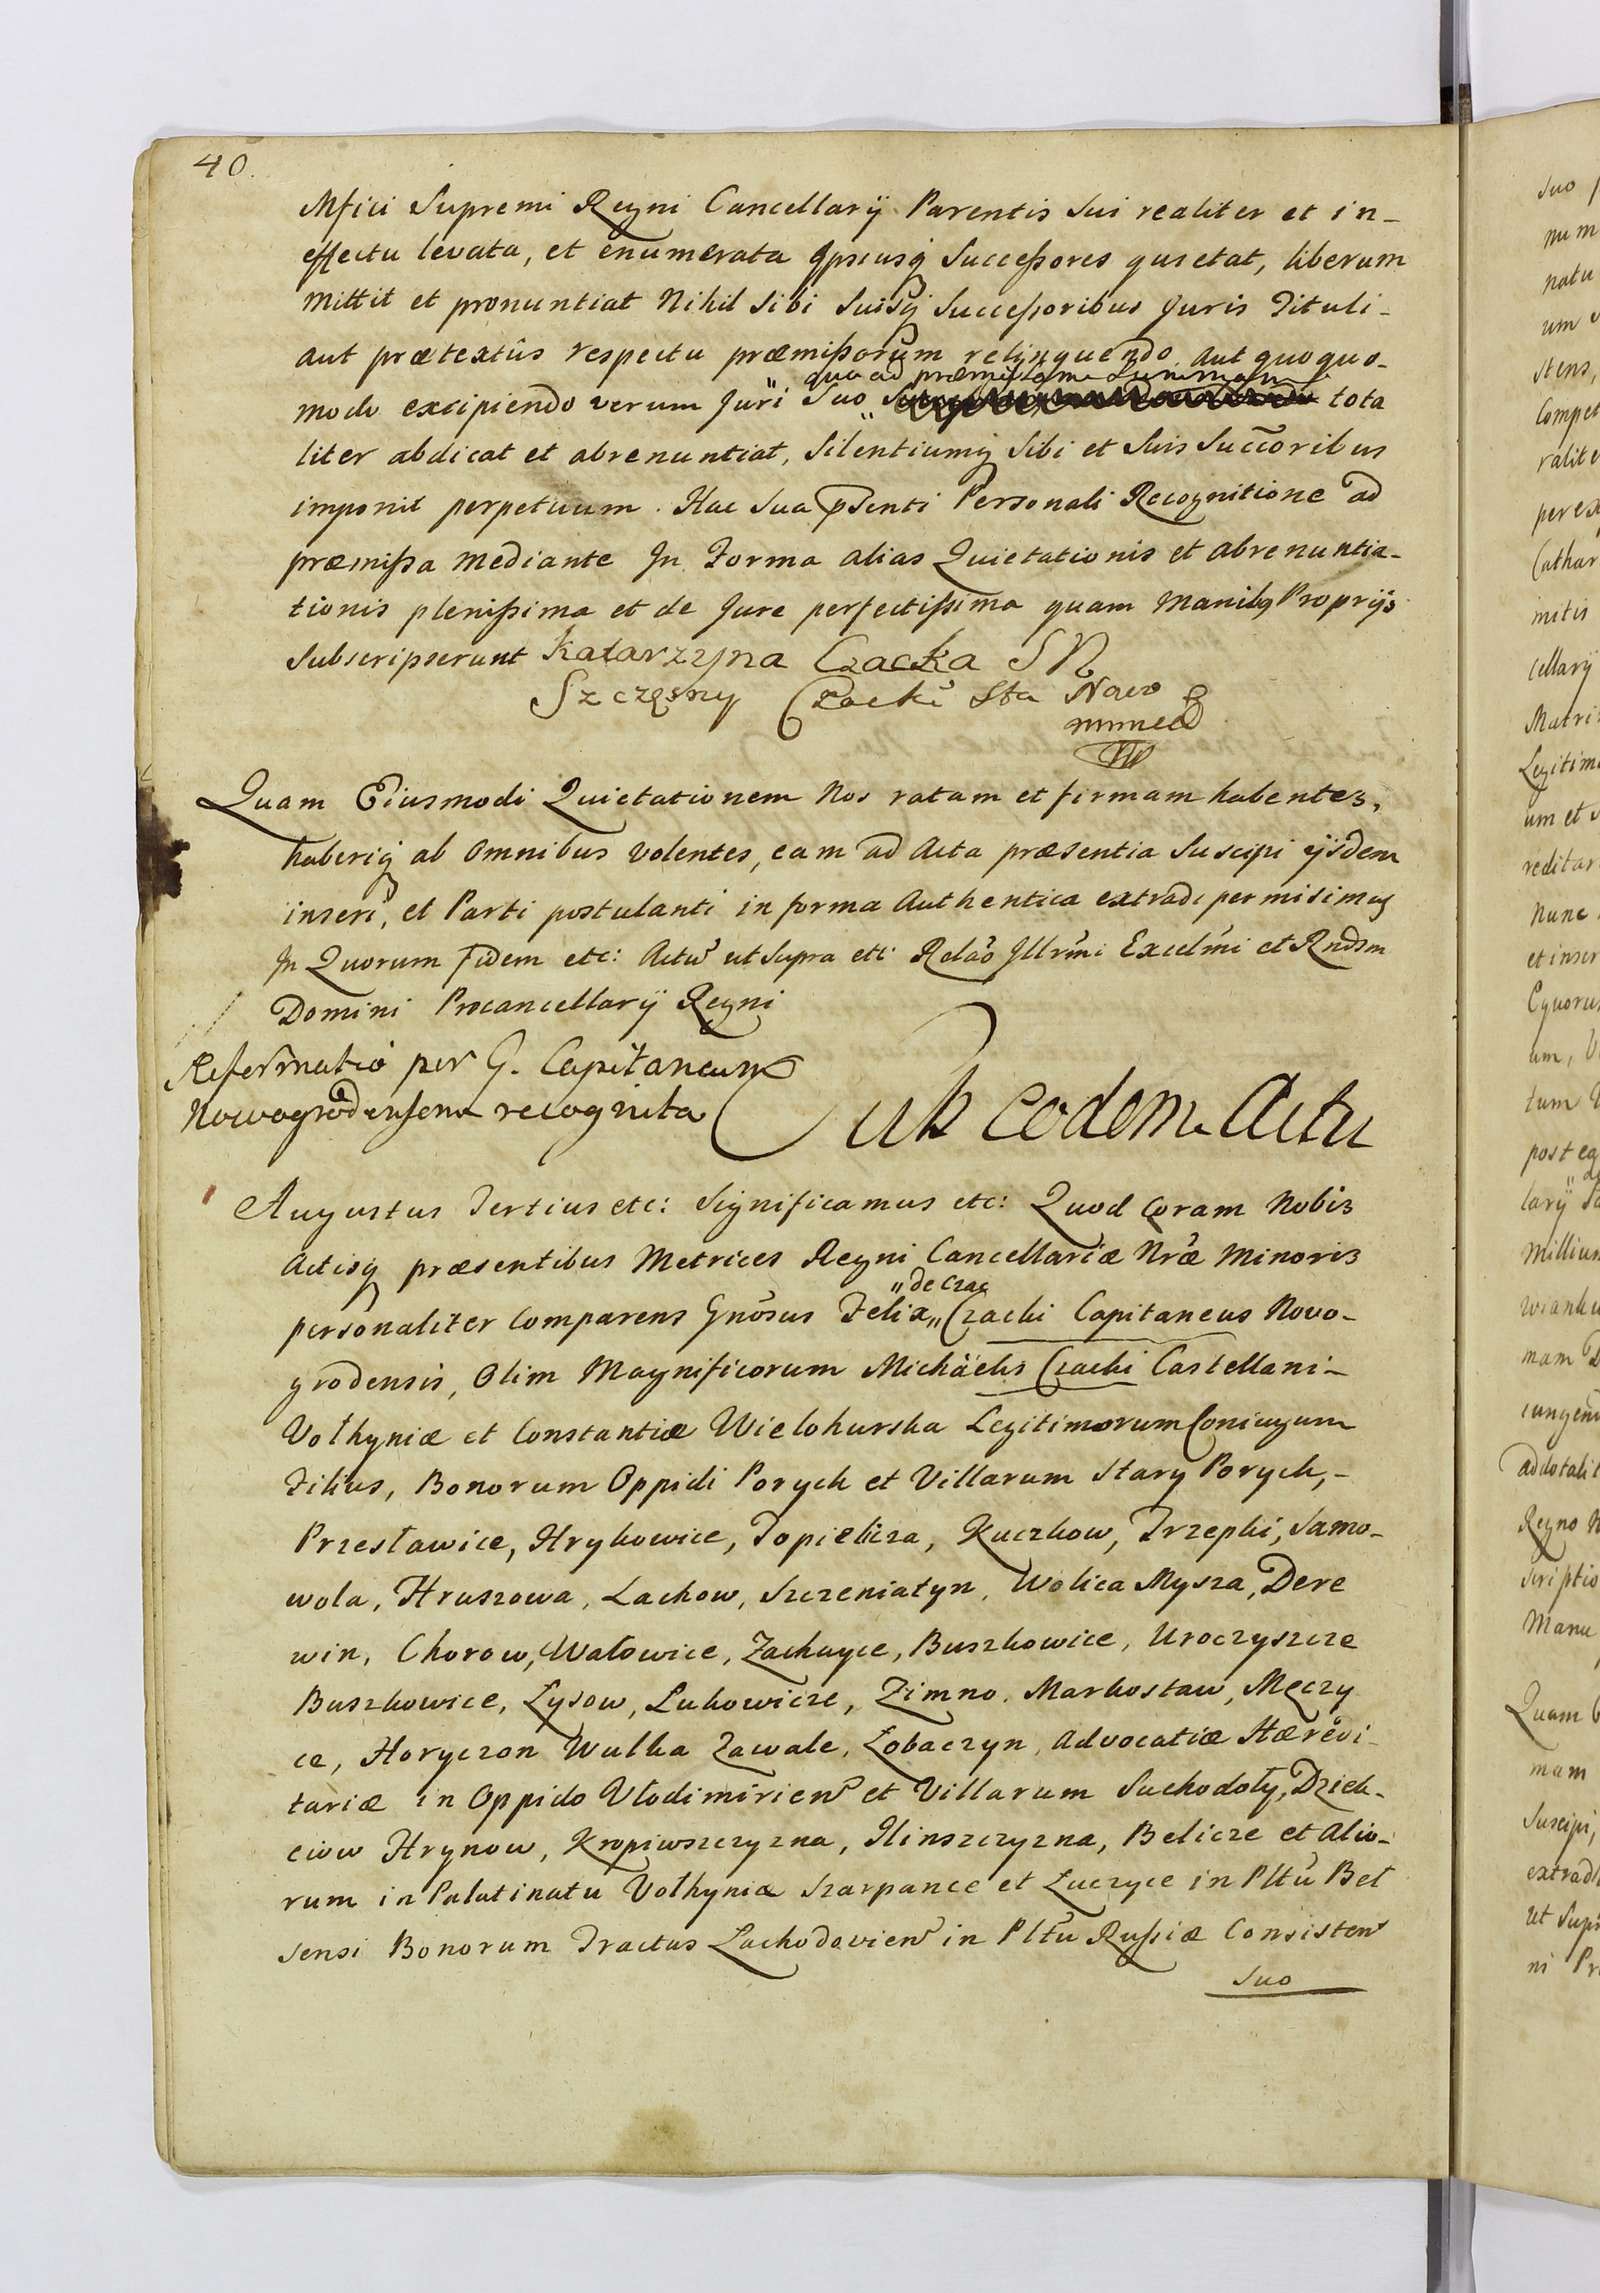 40.
Mfici Supremi Regni Cancellarÿ Parentis Sui realiter et in-
effectu levata, et enumerata Ipsiusq Successores quietat, liberum
mittit et pronuntiat Nihil Sibi Suisq Successoribus Juris Tituli-
aut prætextûs respectu præmissorum relinquendo aut quoquo-
quo ad præmissam Summam
modo excipiendo verum Juri Suo tota
liter abdicat et abrenuntiat, Silentiumq Sibi et Suis Succoribus
imponit perpetuum. Hac Sua pSenti Personali Recognitione ad
præmissa mediante In Forma alias Quietationis et abrenuntia-
tionis plenissima et de Jure perfectissima quam Manibq Proprÿs
Subscripserunt Katarzyna Czacka SN
Szczęsny Czacki Sta Nowo
mmed
Quam Eiusmodi Quietationem Nos ratam et firmam habentes,
haberiq ab Omnibus volentes, eam ad Acta præsentia Suscipi ÿsdem
inseri, et Parti postulanti in forma Authentica extradi permisimus
In Quorum fidem etc: Actu ut Supra etc: Relao Illrmi Excellmi et Rndsm
Domini Procancellarÿ Regni
Reformatio per G. Capitaneum
Nowogrodensem recognita
Sub eodem Actu
Augustus Tertius etc: Significamus etc: Quod Coram Nobis
Actisq præsentibus Metrices Regni Cancellariæ Nræ Minoris
"de Czac
personaliter Comparens Gnosus Felix" Czacki Capitaneus Novo-
grodensis, Olim Magnificorum Michaelis Czacki Castellani-
Volhyniæ et Constantiæ Wielohurska Legitimorum Coniugum
Filius, Bonorum Oppidi Poryck et Villarum Stary Poryck,-
Przesławice, Hrykowice, Topielicza, Kuczkow, Trzepki, Samo-
wola, Hruszowa, Lachow, Szczeniatyn, Wolica Mysza, Dere
win, Chorow, Watowice, Zachayce, Buszkowice, Uroczyszcze
Buszkowice, Łysow, Lukowicze, Zimno, Markostaw, Męczy
ce, Horyczon Wulka Zawale, Łobaczyn, Advocatiæ Hæredi-
tariæ in Oppido Vlodimirien et Villarum Suchodoły, Dziek-
ciow Hrynow, Kropiwszczyzna, Ilinszczyzna, Belicze et Alio-
rum in Palatinatu Volhyniæ Szarpance et Łuczyce in Pltu Bel
sensi Bonorum Tractus Lachodovien in Pltu Russiæ Consisten
Suo